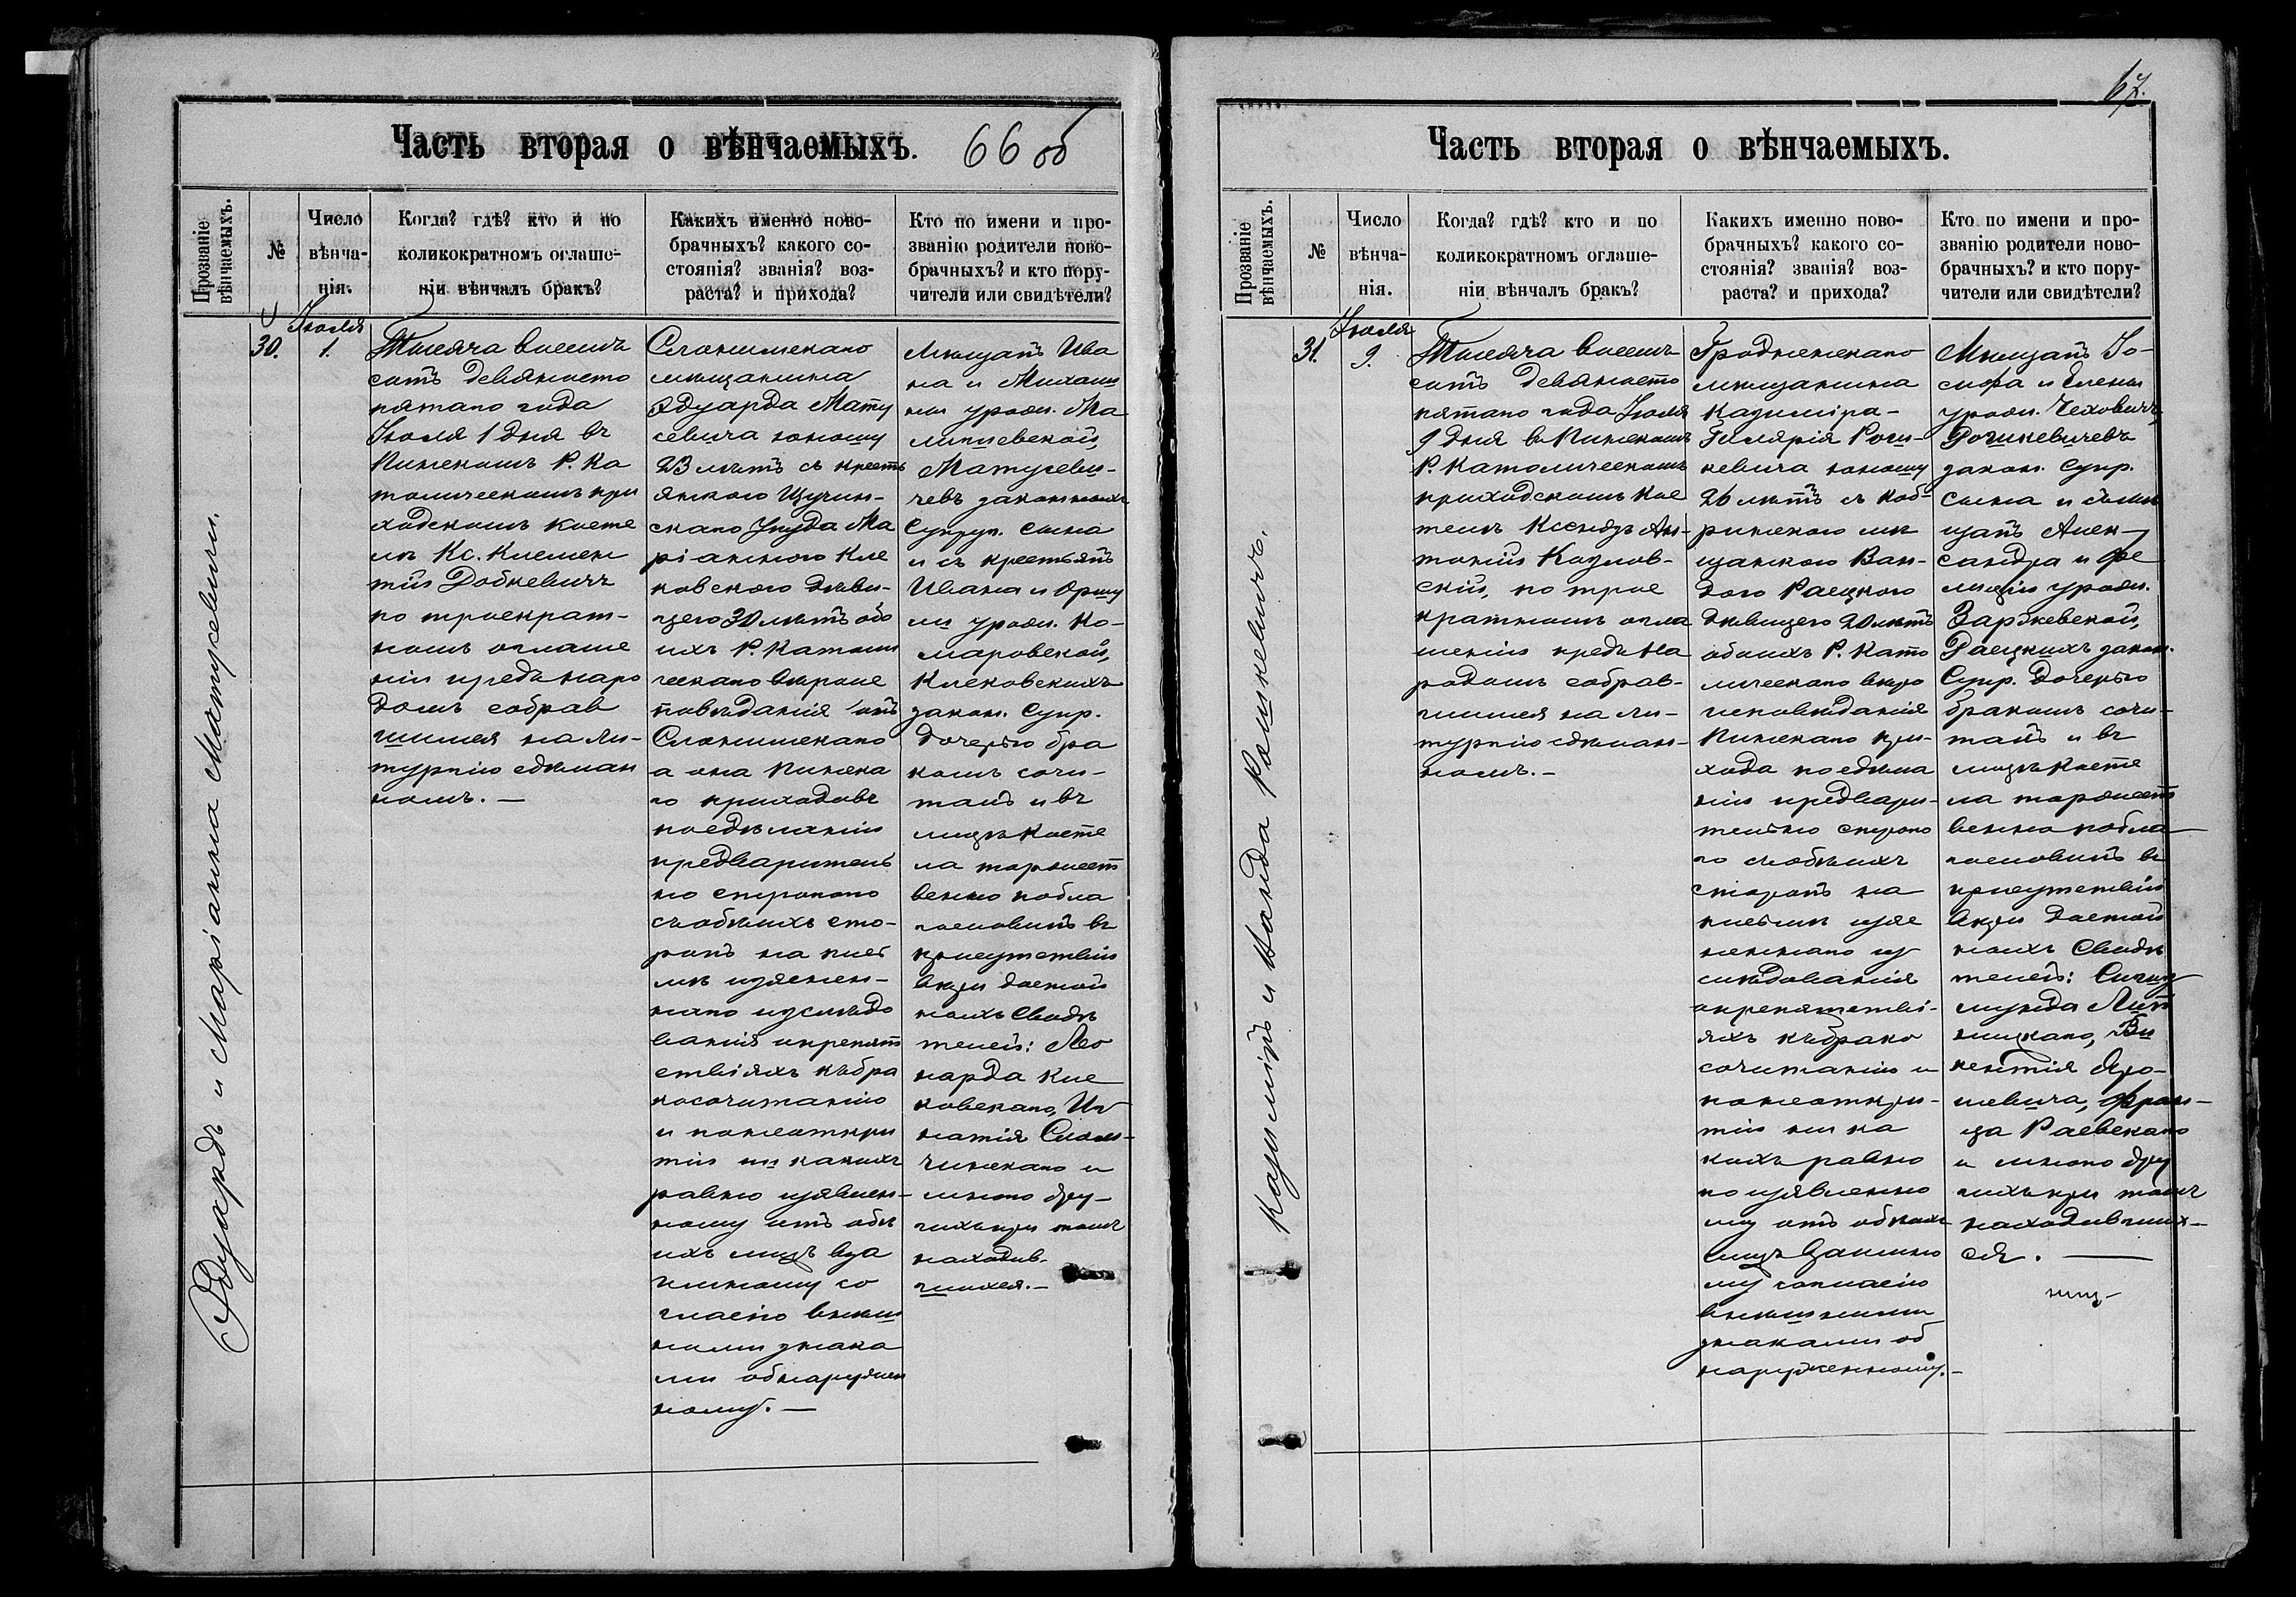 Часть вторая о вѣнчаемыхъ.
66 об
Прозваніе вѣнчаемыхъ.
№
Число вѣнча-
нія.
Когда? гдѣ? кто и по
коликократномъ оглаше-
ніи вѣнчалъ бракъ?
Какихъ именно ново-
брачныхъ? какого со-
стоянія? званія? воз-
раста? и прихода?
Кто по имени и про-
званію родители ново-
брачныхъ? и кто пору-
чители или свидѣтели?
Эдуардъ и Маріанна Матусевичи.
30.
Іюля
1.
Тысяча восемь
сотъ девяносто
пятаго года
Іюля 1 дня въ
Пинскомъ Р. Ка
толическомъ при
ходскомъ косте
лѣ Кс. Клемен
тій
по троекрат-
номъ оглаше
ніи предъ наро
домъ собрав
шимся на ли-
тургію сдѣлан
номъ. —
Слонимскаго
мѣщанина
Эдуарда Мату
севича юношу
23 лѣтъ съ кресть
янкою Щучин-
скаго уѣзда Ма
ріанною Кле
ковскою дѣви-
цею 30 лѣтъ обо
ихъ Р. Католи
ческаго вѣроис
повѣданія онъ
Слонимскаго
а она Пинска
го приходовъ
по сдѣланіи
предваритель
но строгаго
съ обѣихъ сто-
ронъ на пись
мѣ изъяснен-
наго изслѣдо
ванія о препят
ствіяхъ къ бра
косочитанію
и по неоткры
тіи ни какихъ
равно изъявлен-
ному отъ обѣ
ихъ лицъ вза
имному со
гласію внѣш
ними знака
ми обнаружен
ному. —
Мѣщанъ Ива
на и Михали
ны урожд. Ма
линовской,
Матусеви-
чевъ законныхъ
Супруг. сына
и съ крестьянъ
Ивана и
урожд. Ко-
маровской,
Клековскихъ
закон. Супр.
дочерью бра
комъ сочи-
талъ и въ
лицѣ косте
ла торжест
венно побла
гословилъ въ
присутствіи
вѣры достой
ныхъ свидѣ
телей: Лео
нарда Кле
ковскаго, Иг
натія
и
много дру-
гихъ при томъ
находив-
шихся. —
67.
Часть вторая о вѣнчаемыхъ.
Прозваніе вѣнчаемыхъ.
№
Число вѣнча-
нія.
Когда? гдѣ? кто и по
коликократномъ оглаше-
ніи вѣнчалъ бракъ?
Какихъ именно ново-
брачныхъ? какого со-
стоянія? званія? воз-
раста? и прихода?
Кто по имени и про-
званію родители ново-
брачныхъ? и кто пору-
чители или свидѣтели?
Казиміръ и Ванда
31.
Іюля
9.
Тысяча восемь
сотъ девяносто
пятаго года Іюля
9 дня въ Пинскомъ
Р. Католическомъ
приходскомъ кос
телѣ Ксендзъ Ан-
тоній Козлов-
скій, по трое
кратномъ огла
шеніи предъ на
родомъ собрав-
шимся на ли-
тургію сдѣлан-
номъ. —
Гродненскаго
мѣщанина
Казиміра-
Гилярія
юношу
26 лѣтъ съ Коб-
ринскою мѣ
щанкою Ван-
дою Раецкою
дѣвицею 20 лѣтъ
обоихъ Р. Като
лическаго вѣро
исповѣданія
Пинскаго при-
хода по сдѣла
ніи предвари-
тельно строга
го съ обѣихъ
сторонъ на
письмѣ изъяс
неннаго из
слѣдованія
о препятстві-
яхъ къ брако
сочитанію и
по неоткры-
тіи ни ка
кихъ равно
по изъявленно
му отъ обѣихъ
лицъ взаимно
му согласію
внѣшними
знаками об
наруженному. —
Мѣщанъ Іо-
сифа и Елены
урожд. Чеховичъ,
закон. Супр.
сына и съ мѣ
щанъ Алек-
сандра и Фе
лиціи урожд.
Заржевской,
Раецкихъ закон.
Супр. дочерью
бракомъ сочи-
талъ и въ
лицѣ косте
ла торжест
венно побла
гословилъ въ
присутствіи
вѣры достой
ныхъ свидѣ
телей: Сигиз
мунда
Ви
кентія Яро-
шевича, Фран-
ца Раевскаго
и много дру
гихъ при томъ
находивших-
ся. —